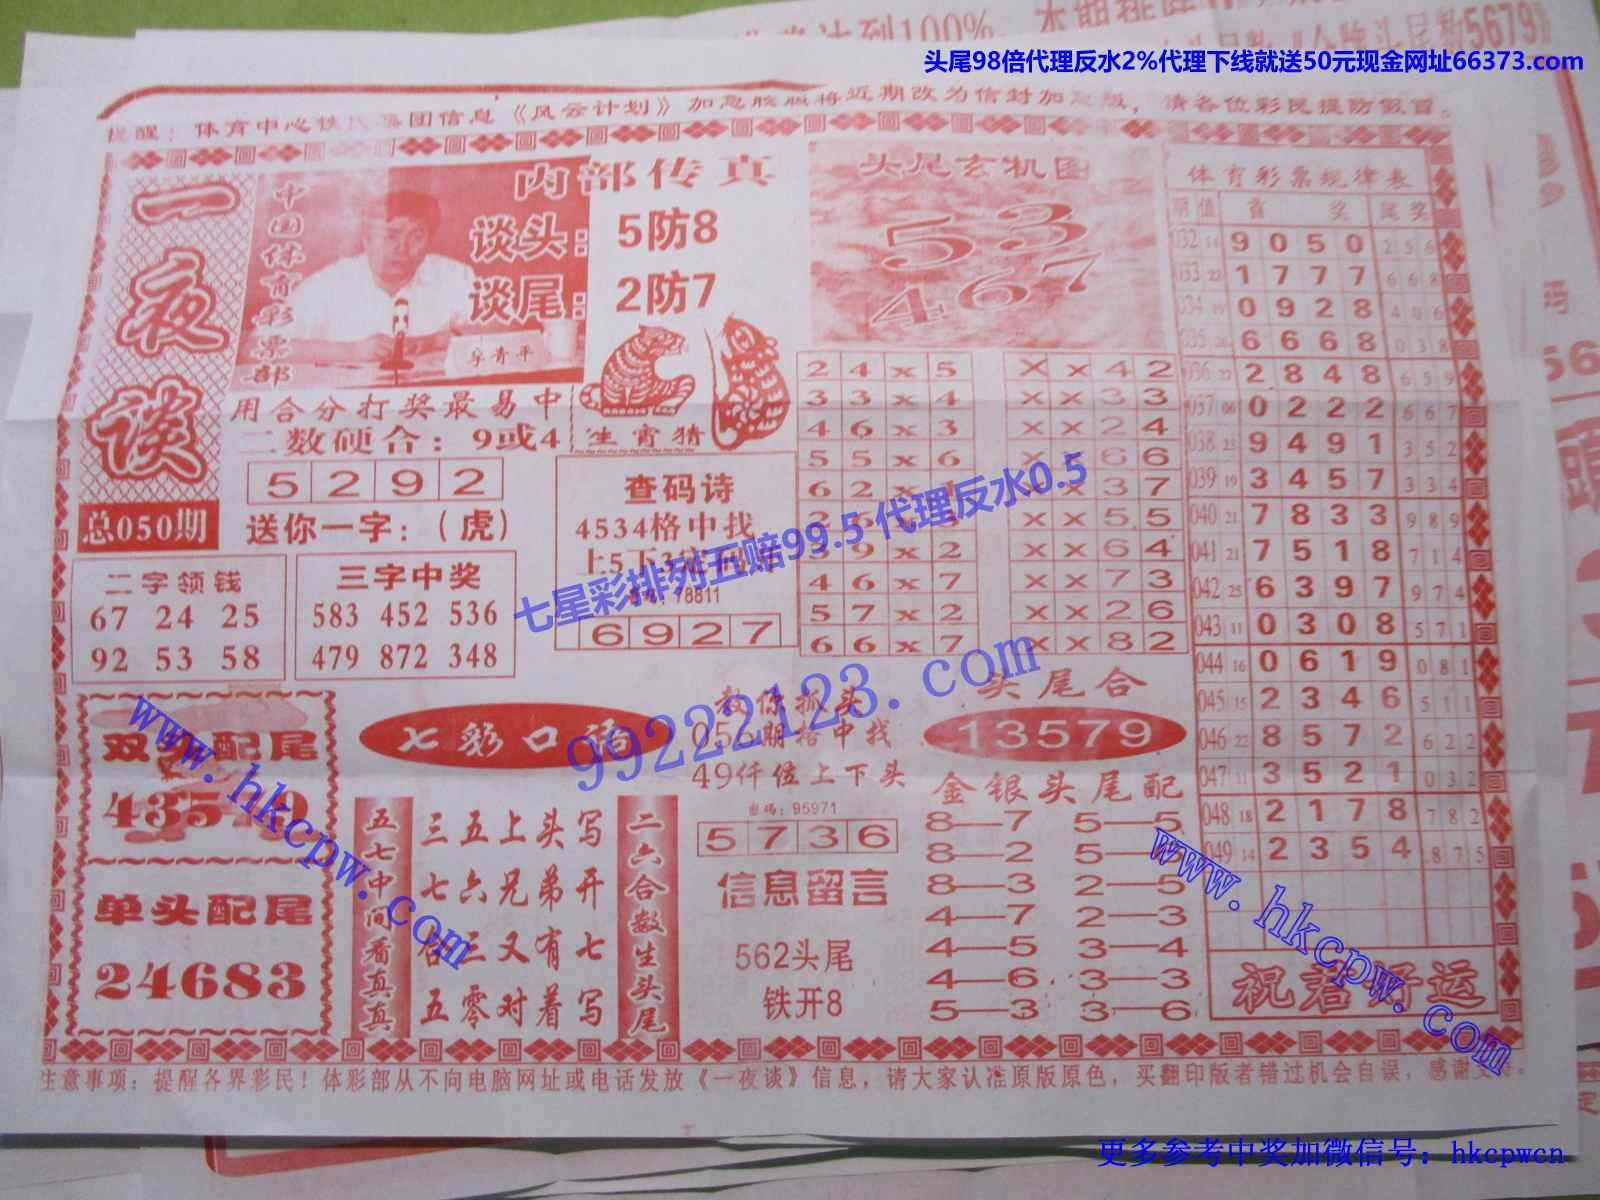 头尾98倍代理反水2%代理下线就送50元现金网址66373.com
一夜谈
总050期
中国体育彩票部
内部传真
谈头: 5防8
谈尾: 2防7
用合分打奖最易中
二数硬合: 9或4
生肖猜
5 2 9 2
送你一字:(虎)
二字领钱
67 24 25
92 53 58
三字中奖
583 452 536
479 872 348
查码诗
4534格中找
78811
6 9 2 7
头尾玄机图
5 3
4 6 7
2 4 x 5
3 3 x 4
4 6 x 3
5 5 x 6
4 6 x 7
5 7 x 2
6 6 x 7
X x 4 2
x x 3 3
x x 2 4
x x 6 6
x x 3 7
x x 5 5
x x 6 4
x x 7 3
x x 2 6
x x 8 2
体育彩票规律表
期 值 首 奖 尾奖
032 14 9 0 5 0 2 5 6
033 22 1 7 7 7 6 6 8
034 19 0 9 2 8 4 0 6
035 26 6 6 6 8 0 3 8
036 22 2 8 4 8 6 5 9
037 06 0 2 2 2 6 6 7
038 23 9 4 9 1 3 5 2
039 19 3 4 5 7 3 3 4
040 21 7 8 3 3 9 8 9
041 21 7 5 1 8 7 1 4
042 25 6 3 9 7 9 7 4
043 11 0 3 0 8 5 7 1
044 16 0 6 1 9 0 8 1
045 15 2 3 4 6 5 1 1
046 22 8 5 7 2 6 2 2
047 11 3 5 2 1 0 3 2
048 18 2 1 7 8 7 8 2
049 14 2 3 5 4 8 7 5
祝君好运
七星彩排列五赔99.5 代理反水0.5
99222123.com
www.hkcpw.com
www.hkcpw.com
配尾
单头配尾
24683
七彩口语
五七中间看真真
三五上头写
七六兄弟开
三又有七
五零对着写
二六合数生头尾
教你抓头
056期格中找
49仟位上下头
密码: 95971
5 7 3 6
信息留言
562头尾
铁开8
头尾合
13579
金银头尾配
8—7 5—5
8—2
8—3 2—5
4—7 2—3
4—5 3—4
4—6 3—3
5—3 3—6
注意事项: 提醒各界彩民! 体彩部从不向电脑网址或电话发放《一夜谈》信息, 请大家认准原版原色, 买翻印版者错过机会自误,
更多参考中奖加微信号: hkcpwcn